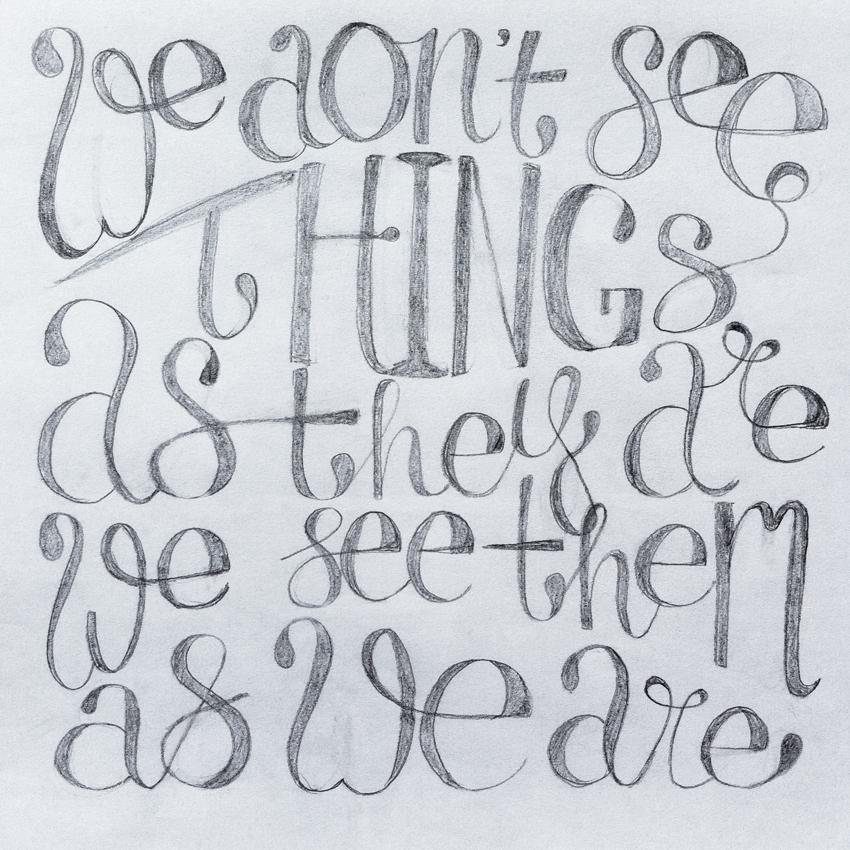 We don't see
THINGs
as they are
we see them
as we are